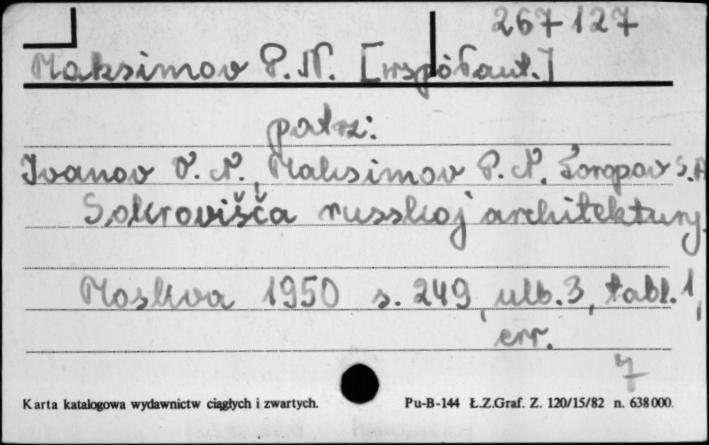 267127
Maksimov P.N. [współaut.]
patrz:
Ivanov V.N., Maksimov P.N. Toropov S.A
Sokrovišča russkoj architektury.
Moskva 1950 s. 249, ulb. 3, tabl. 1,
err.
7
Karta katalogowa wydawnictw ciągłych i zwartych. Pu-B-144 Ł.Z.Graf. Z. 120/15/82 n. 638000.